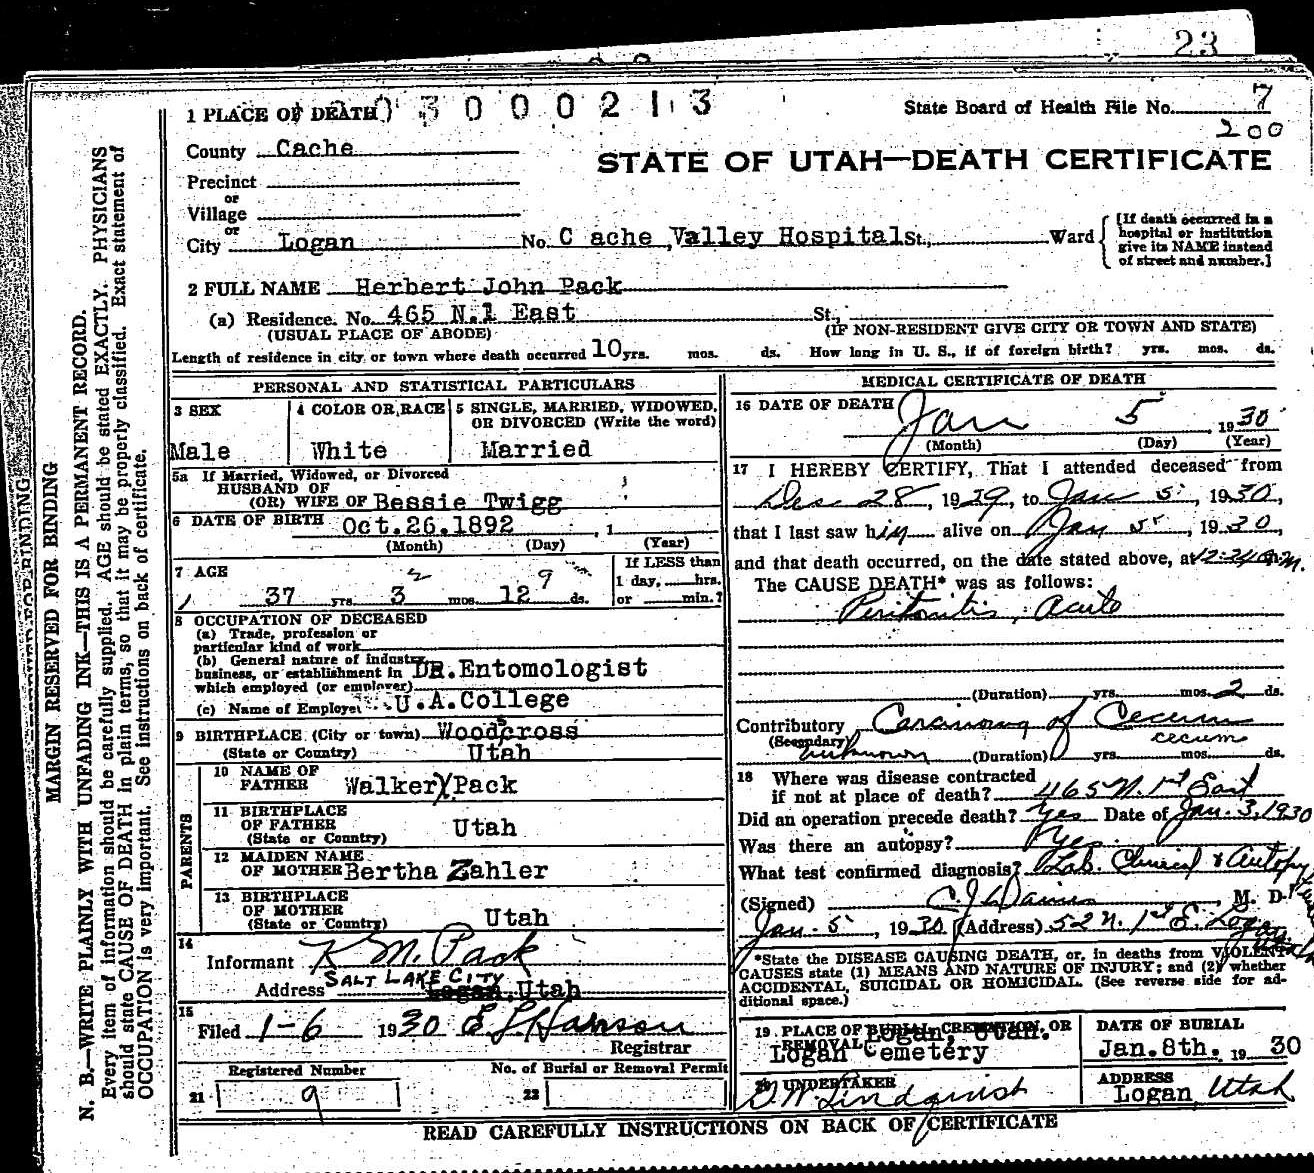 23
1 PLACE OF DEATH 3 0 0 0 2 1 3 State Board of Health File No. 7
200
County Cache
STATE OF UTAH—DEATH CERTIFICATE
Precinct
or
Village
or
City Logan No. C ache Valley Hospital St., Ward
[If death occurred in a
hospital or institution
give its NAME instead
of street and number.]
2 FULL NAME Herbert John Pack
(a) Residence. No. 465 N.1 East St.,
(USUAL PLACE OF ABODE) (IF NON-RESIDENT GIVE CITY OR TOWN AND STATE)
Length of residence in city or town where death occurred 10 yrs. mos. ds. How long in U. S., if of foreign birth? yrs. mos. ds.
PERSONAL AND STATISTICAL PARTICULARS
3 SEX
Male
4 COLOR OR RACE
White
5 SINGLE, MARRIED, WIDOWED,
OR DIVORCED (Write the word)
Married
5a If Married, Widowed, or Divorced
HUSBAND OF
(OR) WIFE OF Bessie Twigg
6 DATE OF BIRTH Oct.26.1892 , 1
(Month) (Day) (Year)
7 AGE 2 9
37 yrs. 3 mos. 12 ds.
If LESS than
1 day, hrs.
or min.?
8 OCCUPATION OF DECEASED
(a) Trade, profession or
particular kind of work
(b) General nature of industry,
business, or establishment in DR.Entomologist
which employed (or employer)
(c) Name of Employer U.A.College
9 BIRTHPLACE (City or town) Woodscross
(State or Country) Utah
PARENTS
10 NAME OF
FATHER Walker Y Pack
11 BIRTHPLACE
OF FATHER
(State or Country) Utah
12 MAIDEN NAME
OF MOTHER Bertha Zahler
13 BIRTHPLACE
OF MOTHER
(State or Country) Utah
14
Informant K M. Pack
Address SALT LAKE CITY Logan, Utah
15
Filed 1-6 1930 E L Hanson
Registrar
Registered Number No. of Burial or Removal Permit
21 9 22
MEDICAL CERTIFICATE OF DEATH
16 DATE OF DEATH Jan 5 1930
(Month) (Day) (Year)
17 I HEREBY CERTIFY, That I attended deceased from
Dec 28, 1929, to Jan 5, 1930,
that I last saw him alive on Jan 5, 1930,
and that death occurred, on the date stated above, at M.
The CAUSE DEATH* was as follows:
Peritonitis, Acute
(Duration) yrs. mos. 2 ds.
Contributory Carcinoma of Cecum
(Secondary) cecum
unknown (Duration) yrs. mos. ds.
18 Where was disease contracted
if not at place of death? 465 N. 1st East
Did an operation precede death? Yes Date of Jan. 3, 1930
Was there an autopsy? Yes
What test confirmed diagnosis? Lab. Clinical & Autopsy
(Signed) M. D.
Jan. 5, 1930 (Address) 52 N. 1st E. Logan
Utah
*State the DISEASE CAUSING DEATH, or, in deaths from VIOLENT
CAUSES state (1) MEANS AND NATURE OF INJURY; and (2) whether
ACCIDENTAL, SUICIDAL OR HOMICIDAL. (See reverse side for ad-
ditional space.)
19 PLACE OF BURIAL, CREMATION, OR
REMOVAL Logan, Utah.
Logan Cemetery
DATE OF BURIAL
Jan.8th. 1930
20 UNDERTAKER
Lindquist
ADDRESS
Logan Utah
READ CAREFULLY INSTRUCTIONS ON BACK OF CERTIFICATE
MARGIN RESERVED FOR BINDING
N. B.—WRITE PLAINLY WITH UNFADING INK—THIS IS A PERMANENT RECORD.
Every item of information should be carefully supplied. AGE should be stated EXACTLY. PHYSICIANS
should state CAUSE OF DEATH in plain terms, so that it may be properly classified. Exact statement of
OCCUPATION is very important. See instructions on back of certificate.